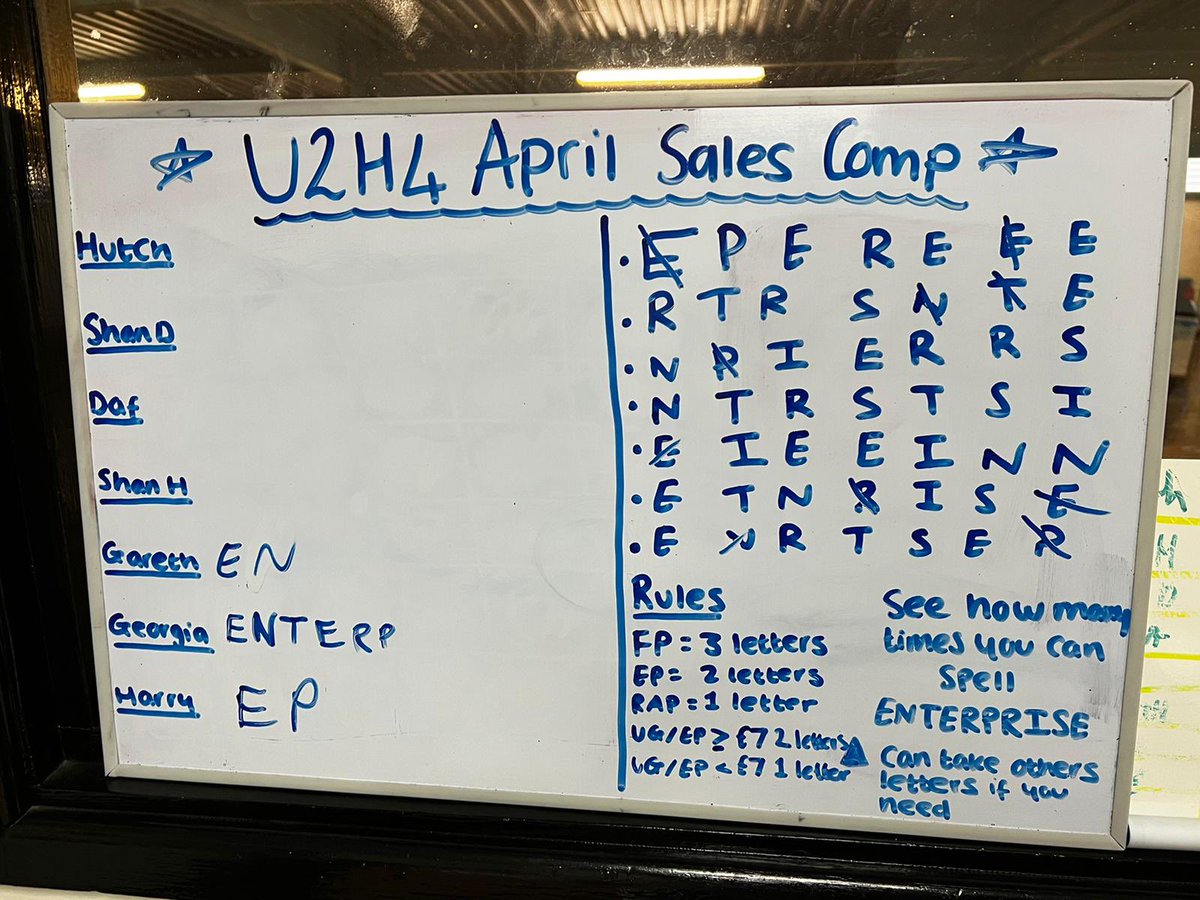 U2H4 April Sales Comp
Hutch
Shan D
Daf
Shan H
Gareth EN
Georgia ENTERP
Harry EP
• E P E R E E E
• R T R S N T E
• N R I E R R S
• N T R S T S I
• E I E E I N N
• E T N R I S E
• E N R T S E R
Rules
FP = 3 letters
EP = 2 letters
RAP = 1 letter
UG/EP ≥ £7 2 letters
UG/EP < £7 1 letter
See how many
times you can
spell
ENTERPRISE
Can take others
letters if you
need